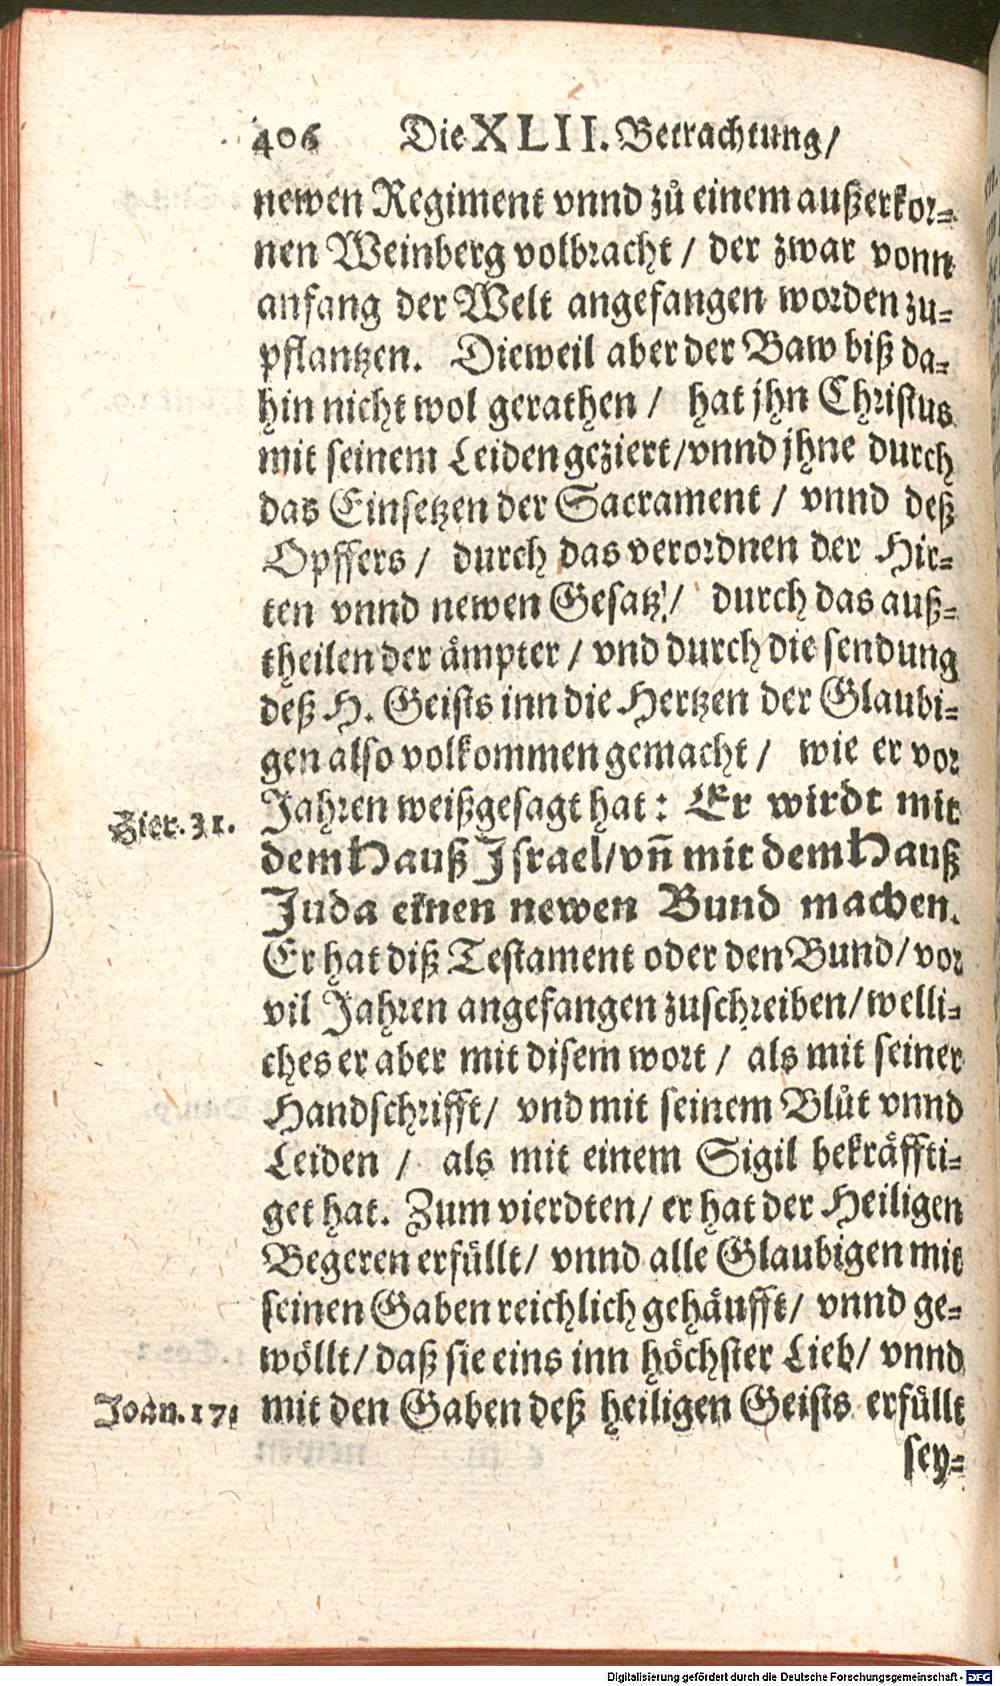 406 Die XLII. Betrachtung/
newen Regiment vnnd zů einem außerkor-
nen Weinberg volbracht / der zwar vonn
anfang der Welt angefangen worden zu-
pflantzen. Dieweil aber der Baw biß da-
hin nicht wol gerathen / hat jhn Christus
mit seinem Leiden geziert/vnnd jhne durch
das Einsetzen der Sacrament / vnnd deß
Opffers / durch das verordnen der Hir-
ten vnnd newen Gesatz / durch das auß-
theilen der ämpter / vnd durch die sendung
deß H. Geists inn die Hertzen der Glaubi-
gen also volkommen gemacht / wie er vor
Hier. 31. Jahren weißgesagt hat: Er wirdt mit
dem Hauß Israel/vn̄ mit dem Hauß
Juda einen newen Bund machen.
Er hat diß Testament oder den Bund/ vor
vil Jahren angefangen zuschreiben/welli-
ches er aber mit disem wort / als mit seiner
Handschrifft/ vnd mit seinem Blůt vnnd
Leiden / als mit einem Sigil bekräffti-
get hat. Zum vierdten/ er hat der Heiligen
Begeren erfüllt/ vnnd alle Glaubigen mit
seinen Gaben reichlich gehäufft/ vnnd ge-
wöllt/ daß sie eins inn höchster Lieb/ vnnd
Joan. 17. mit den Gaben deß heiligen Geists erfüllt
sey-
Digitalisierung gefördert durch die Deutsche Forschungsgemeinschaft - DFG